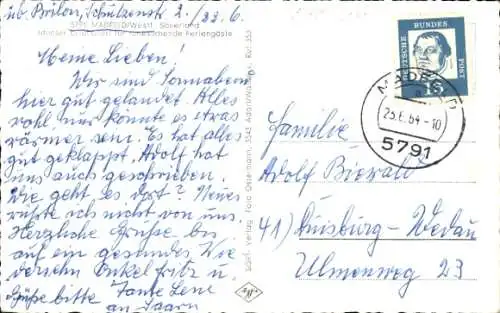 üb. Brilon, Schützenstr. 2. / 23. 6.
5791 MADFELD/Westf. Sauerland
für ruhesuchende Feriengäste
Meine Lieben!
Wir sind Sonnabend
hier gut gelandet. Alles
wohl nur könnte es etwas
wärmer sein. Es hat alles
gut geklappt. Adolf hat
uns auch geschrieben.
Wie geht es dort? Neues
wüßte ich nicht von uns.
Herzliche Grüße bis
auf ein gesundes Wie
dersehn Onkel Fritz u.
Grüße bitte Tante Lene
an Saarn
Schöning Verlag Foto Ossenmann, 3545 Adorf/Waldeck Ruf 355
DEUTSCHE BUNDES POST
15
MADFELD
23.6.64-10
5791
Familie
Adolf Bierwald
41) Duisburg-Wedau
Ulmenweg 23